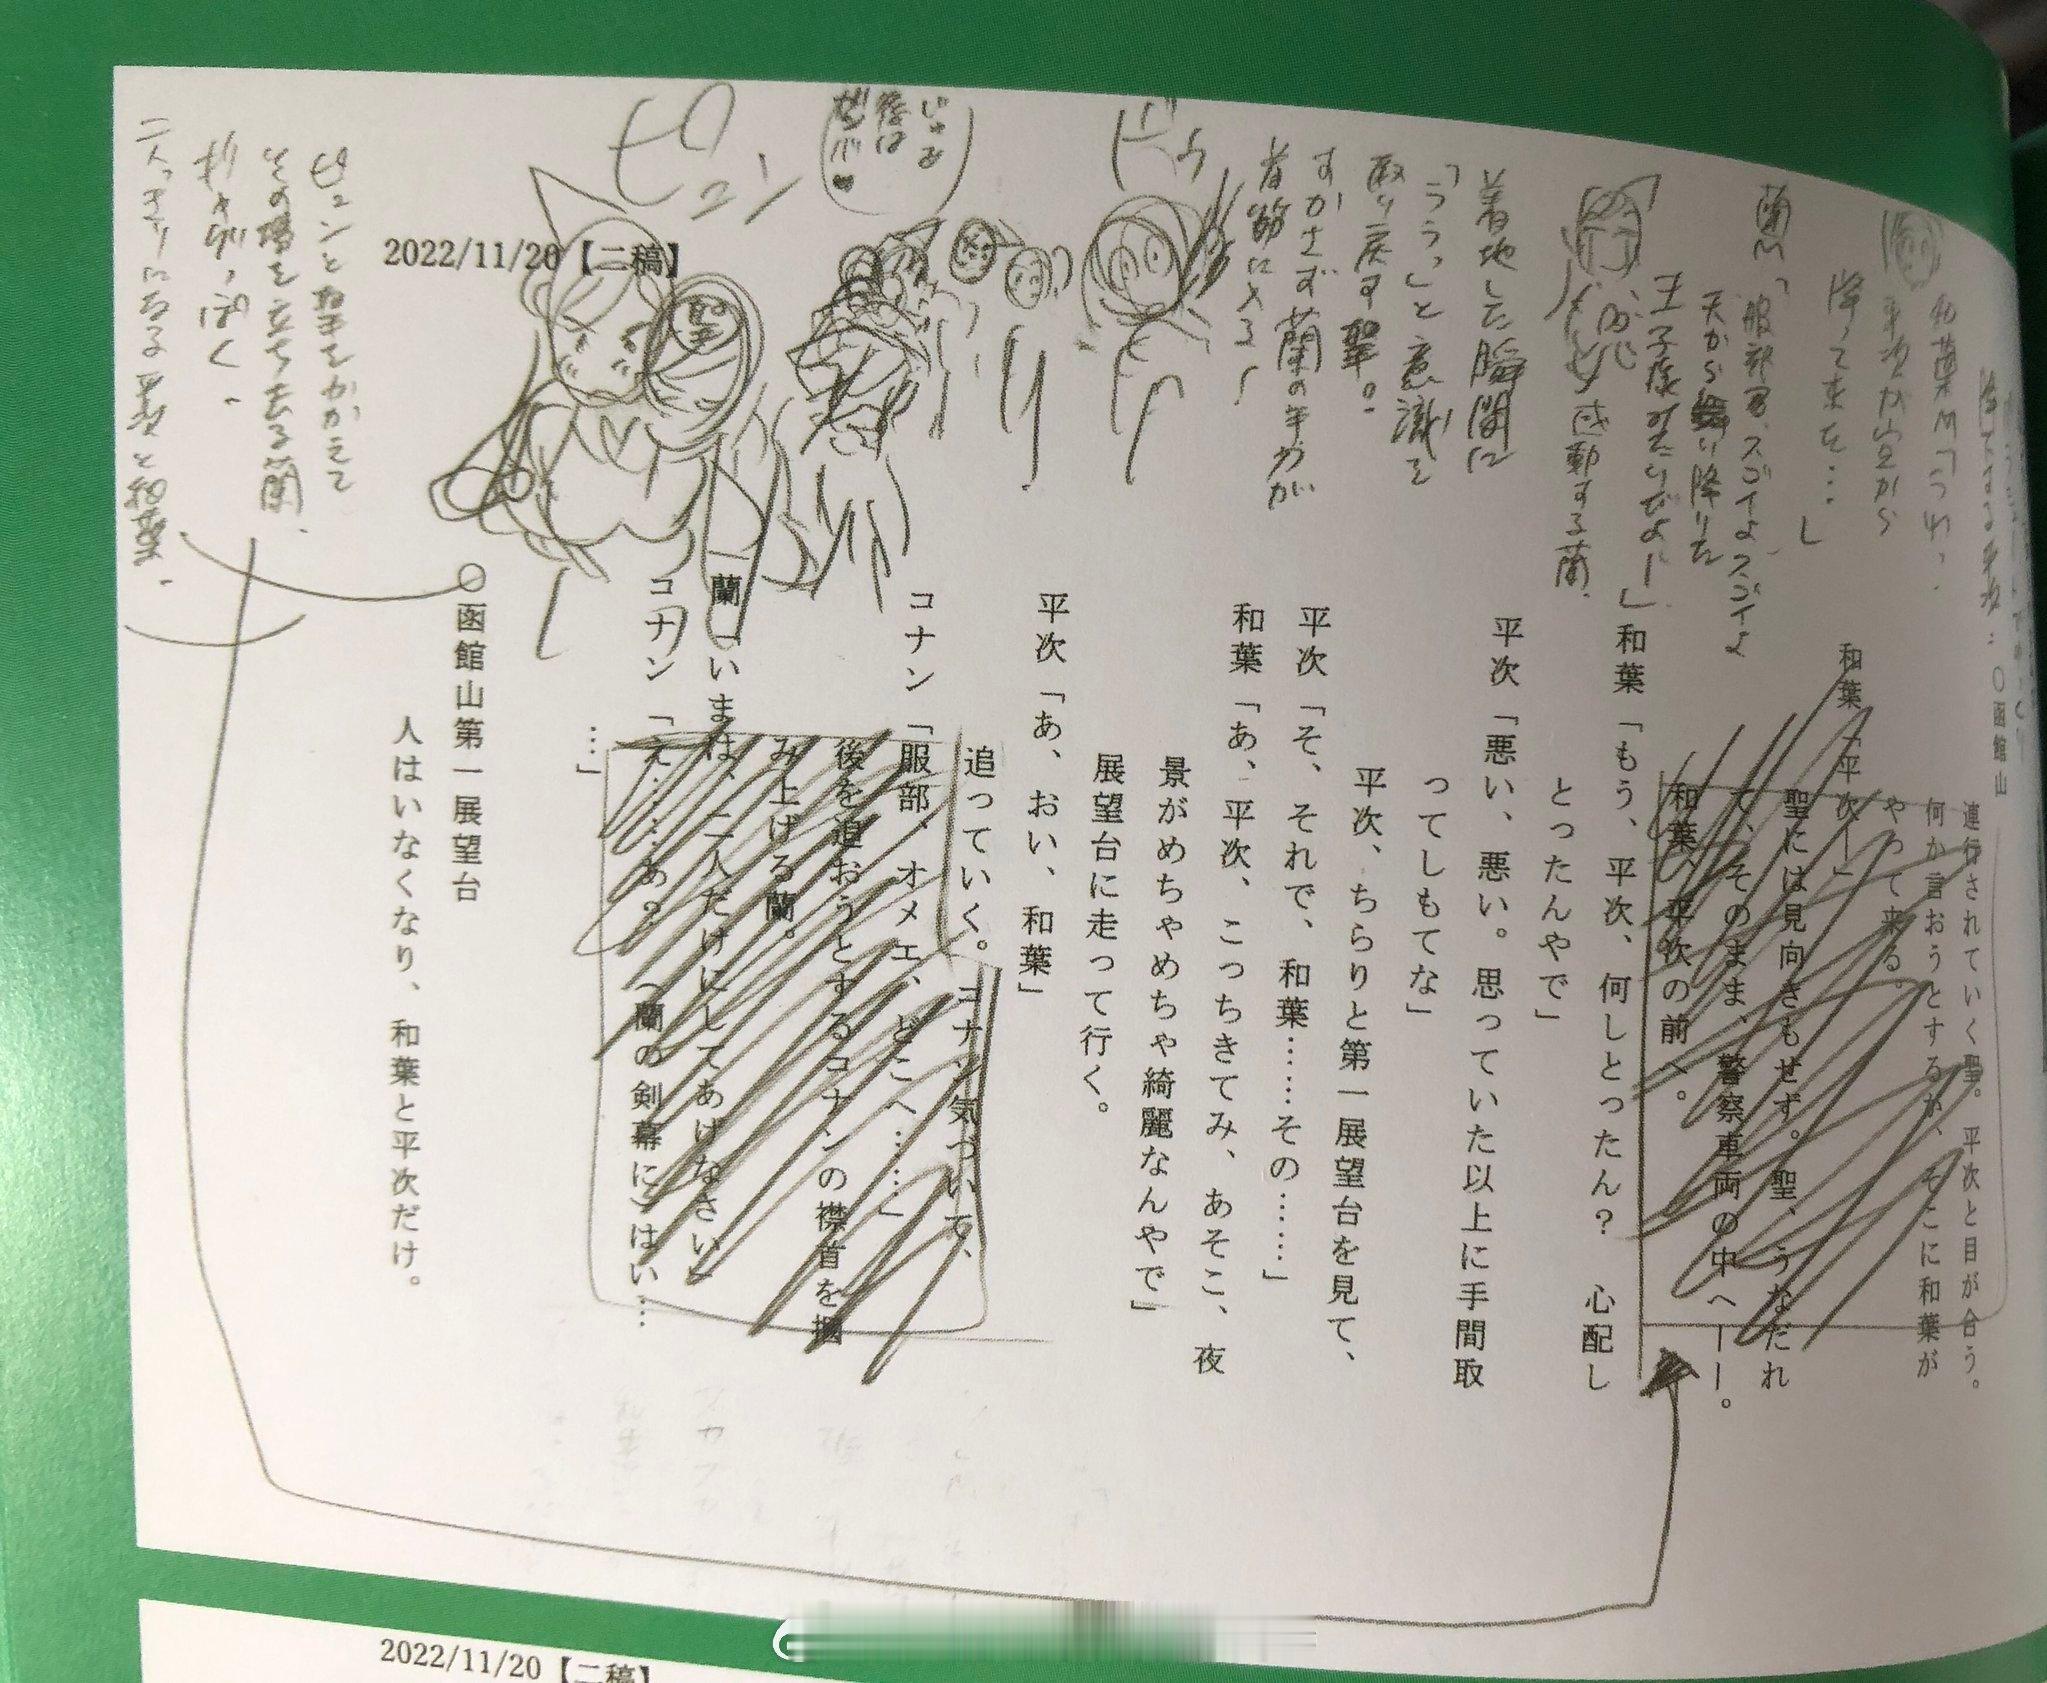 2022/11/20【二稿】
〇函館山
連行されていく聖。平次と目が合う。
何か言おうとするが、そこに和葉が
やって来る。
和葉「平次ー」
聖には見向きもせず。聖、うなだれ
て、そのまま、警察車両の中へーー。
和葉、平次の前へ。
和葉「もう、平次、何しとったん？　心配し
とったんやで」
平次「悪い、悪い。思っていた以上に手間取
ってしもてな」
平次、ちらりと第一展望台を見て、
平次「そ、それで、和葉……その……」
和葉「あ、平次、こっちきてみ、あそこ、夜
景がめちゃめちゃ綺麗なんやで」
展望台に走って行く。
平次「あ、おい、和葉」
追っていく。コナン気づいて、
コナン「服部、オメエ、どこへ……」
後を追おうとするコナンの襟首を摑
み上げる蘭。
蘭「いまは、二人だけにしてあげなさい」
コナン「え……あ？　（蘭の剣幕に）はい…
…」
〇函館山第一展望台
人はいなくなり、和葉と平次だけ。
和葉M「うわ、
平次が空から
降って来た…」
蘭M「服部君、スゴイよスゴイよ
天から舞い降りた
王子様みたいだよー」
感動する蘭、
着地した瞬間に
「ううっ」と意識を
取り戻す聖。
すかさず蘭の手刀が
首筋に入る！
ドゥ
じゃあ
後は
ピュン
聖
ピュンと聖をかかえて
その場を立ち去る蘭、
ギャグっぽく、
二人っきりになる平次と和葉、
2022/11/20【二稿】